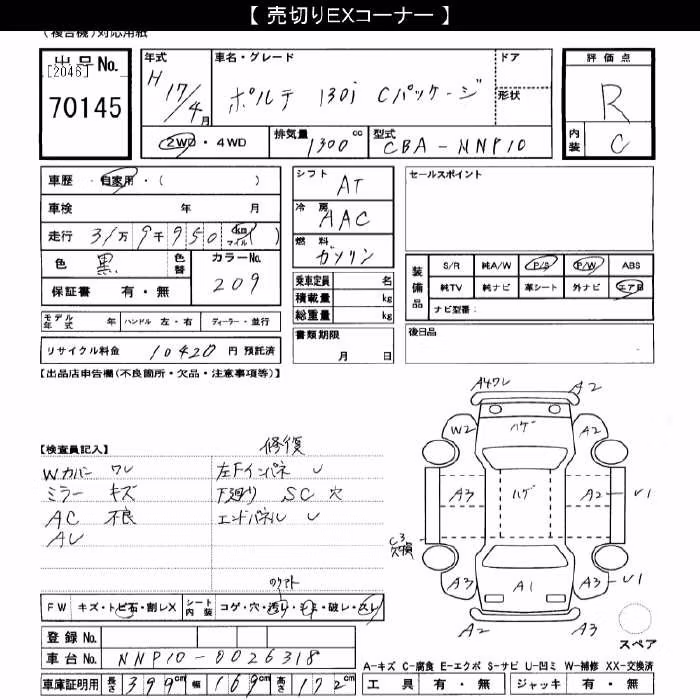 【 売切りEXコーナー 】
(複合機)対応用紙
出品No.
[2046]
70145
年式 H17/4月
車名・グレード ポルテ 130i Cパッケージ
ドア
形状
2WD・4WD
排気量 1300cc
型式 CBA-NNP10
評価点
R
内装 C
車歴・自家用・( )
車検 年 月
走行 31万9千950 km マイル( )
色 黒
色替
カラーNo. 209
保証書 有・無
シフト AT
冷房 AAC
燃料 ガソリン
乗車定員 名
積載量 kg
総重量 kg
書類期限
月 日
セールスポイント
装備品
S/R 純A/W P/S P/W ABS
純TV 純ナビ 革シート 外ナビ エアB
ナビ型番:
後日品
モデル年式 年 ハンドル 左・右 ディーラー・並行
リサイクル料金 10420 円 預託済
【出品店申告欄(不良箇所・欠品・注意事項等)】
【検査員記入】
修復
Wカバー ワレ
ミラー キズ
AC 不良
AU
左Fインパネ U
下廻り SC 穴
エンドパネル U
A4ワレ
A2
W2
ハゲ
A2
A3
ハゲ
A2
U1
C3
欠損
A3
A1
A3
U1
スペア
FW キズ・トビ石・割レX
シート内装 コゲ・穴・汚レ・シミ・破レ・スレ
登録No.
車台No. NNP10-0026318
車庫証明用 長さ 399cm 幅 169cm 高さ 172cm
A-キズ C-腐食 E-エクボ S-サビ U-凹ミ W-補修 XX-交換済
工具 有・無 ジャッキ 有・無